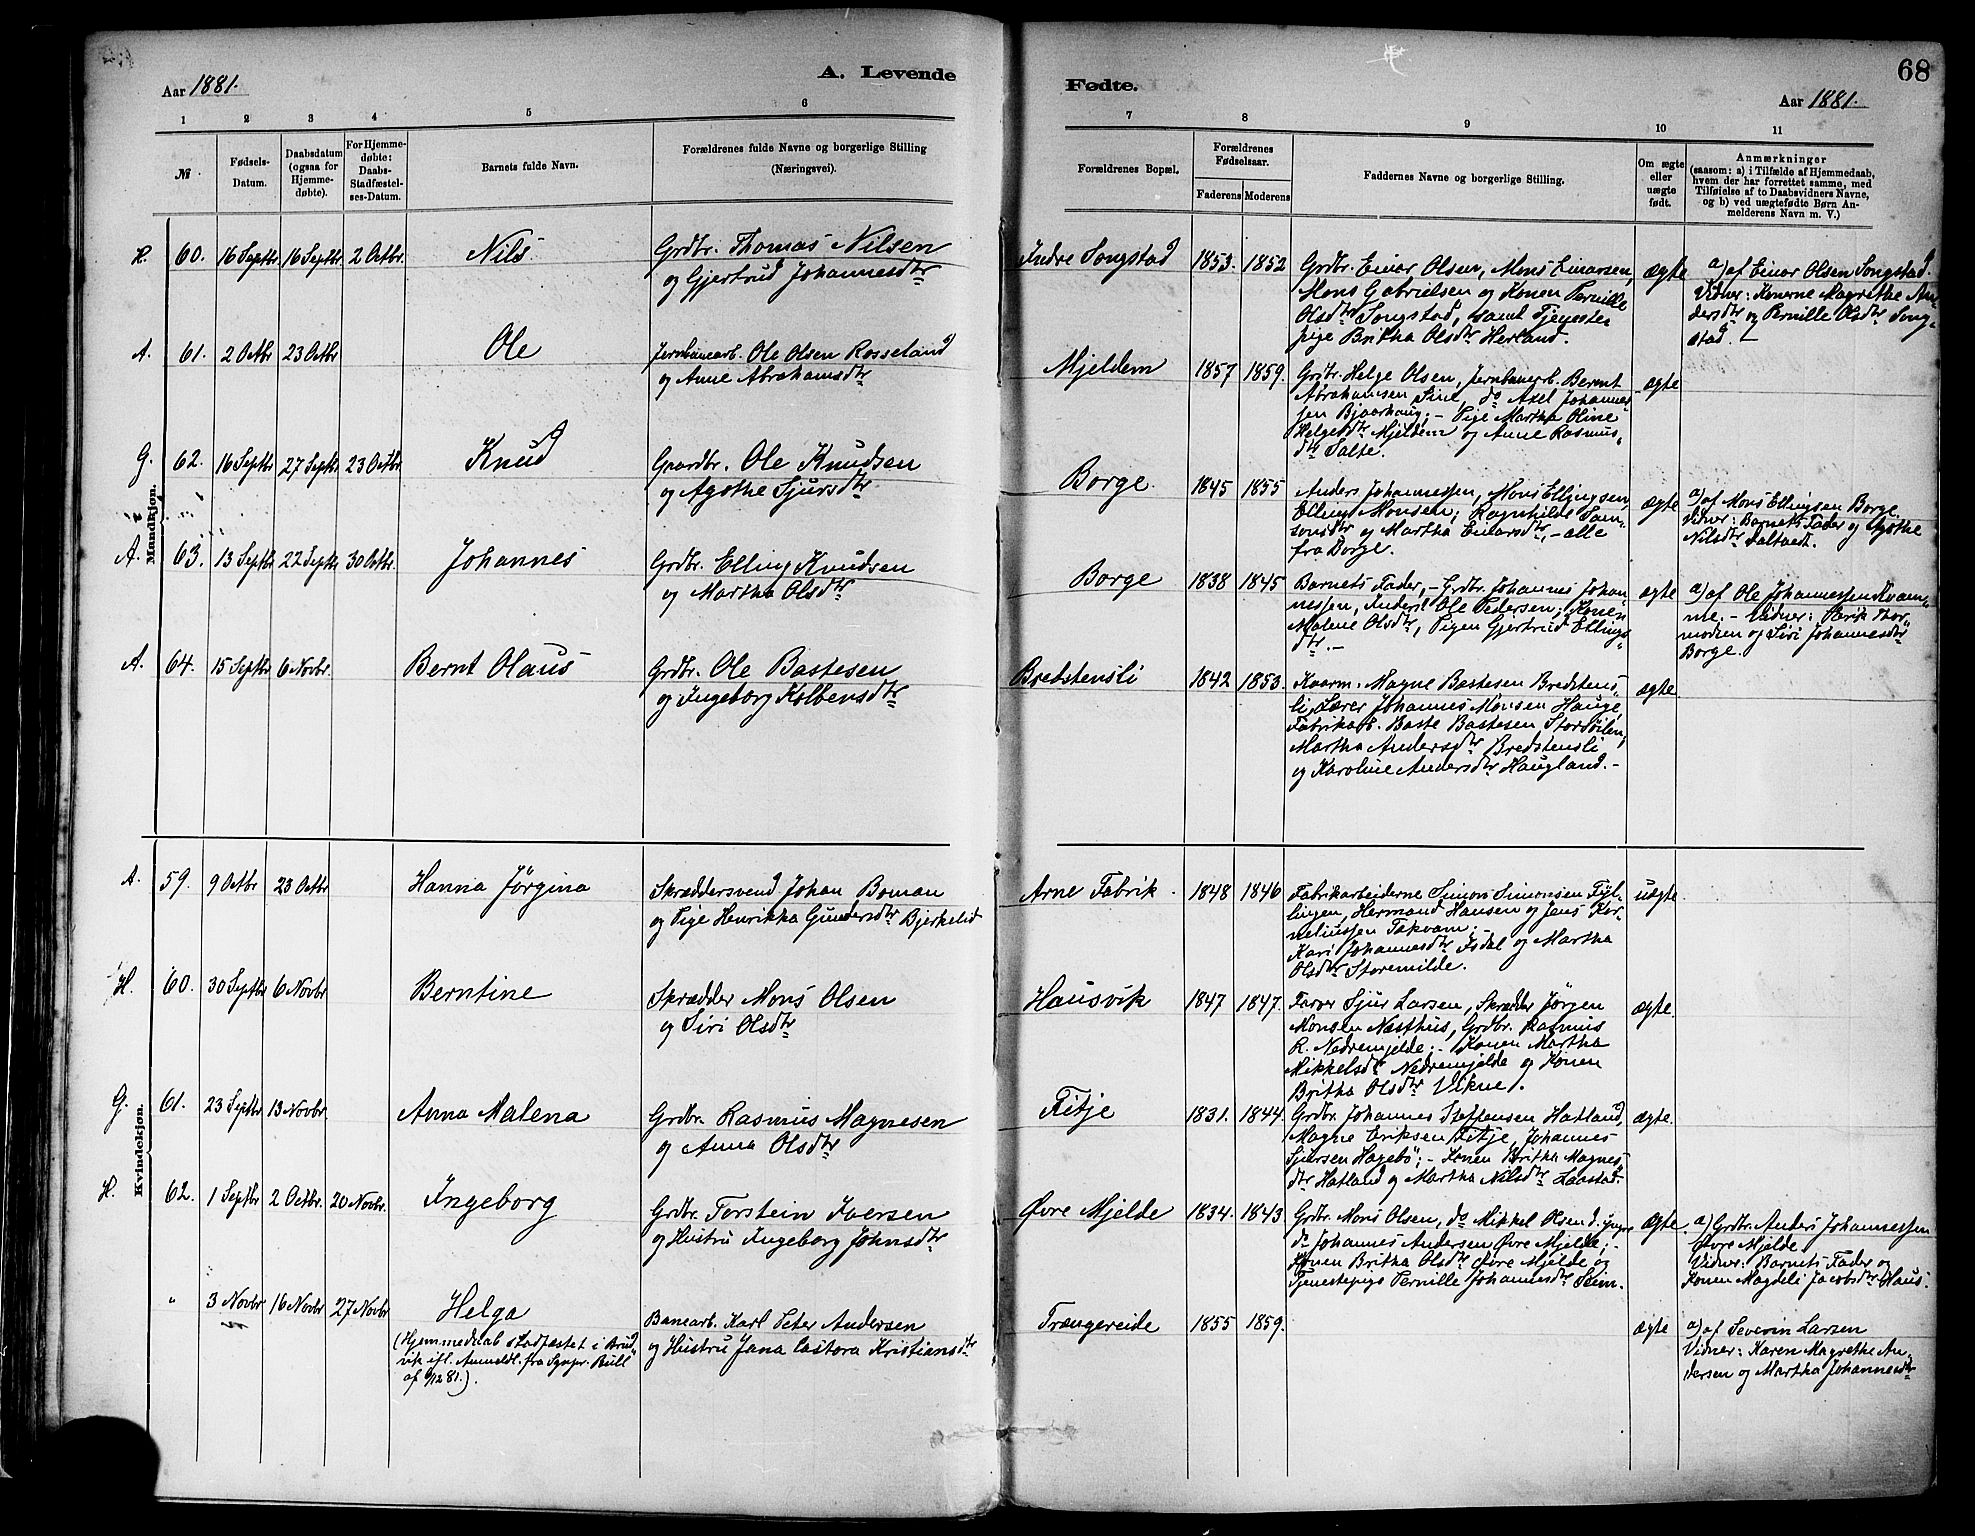 Aar 1881.
A. Levende
1 2 3 4 5 6
№
Fødsels-Datum.
Daabsdatum (ogsaa for Hjemmedøbte).
For Hjemmedøbte: Daabs-Stadfæstelses-Datum.
Barnets fulde Navn.
Forældrenes fulde Navne og borgerlige Stilling (Næringsvei).
Mandkjøn.
H. 60. 16 Septbr 16 Septbr 2 Octbr. Nils Grdbr. Thomas Nilsen
og Gjertrud Johannesdtr
A. 61. 2 Octbr 23 Octbr Ole Jernbanearb. Ole Olsen Rosseland
og Anne Abrahamsdtr
G. 62. 16 Septbr 27 Septbr 23 Octbr. Knud Gaardbr. Ole Knudsen
og Agathe Sjursdtr
A. 63. 13 Septbr 22 Septbr 30 Octbr. Johannes Grdbr. Elling Knudsen
og Martha Olsdtr
A. 64. 15 Septbr 6 Novbr. Bernt Olaus Grdbr. Ole Bastesen
og Ingeborg Kolbensdtr
Kvindekjøn.
A. 59. 9 Octbr 23 Octbr Hanna Jörgina Skræddersvend Johan Boman
og Pige Henrikka Gundersdtr Bjerkelid
H. 60. 30 Septbr 6 Novbr Berntine Skrædder Mons Olsen
og Siri Olsdtr
G. 61. 23 Septbr 13 Novbr. Anna Malena Grdbr. Rasmus Magnesen
og Anna Olsdtr
H. 62. 1 Septbr 2 Octbr. 20 Novbr. Ingeborg Grdbr. Torstein Iversen
og Hustru Ingeborg Johnsdtr
" 3 Novbr 16 Novbr 27 Novbr Helga Banearb. Karl Peter Andersen
(Hjemmedaab stadfæstet i Brud-
vik ifl. Anmeldl. fra Sgnpr. Bull
af 6/12 81.).
og Hustru Jana Castora Kristiansdtr
Fødte.
68
Aar 1881.
7 8 9 10 11
Forældrenes Bopæl.
Forældrenes Fødselsaar.
Faderens Moderens
Faddernes Navne og borgerlige Stilling.
Om ægte eller uægte født.
Anmærkninger
(saasom: a) i Tilfælde af Hjemmedaab,
hvem der har forrettet samme, med
Tilføielse af to Daabsvidners Navne,
og b) ved uægtefødte Børn An-
melderens Navn m. V.)
Indre Songstad 1853. 1852 Grdbr. Einar Olsen, Mons Einarsen,
Mons Gabrielsen og Konen Pernille
Olsdtr Songstad, samt Tjeneste-
pige Britha Olsdtr Herland.
ægte
a) af Einar Olsen Songstad.
Vidner: Konerne Magrethe An-
dersdtr og Pernille Olsdtr Song-
stad.
Mjeldem 1857 1859. Grdbr. Helge Olsen, Jernbanearb. Bernt
Abrahamsen Sine, do Axel Johannes-
sen Bjaarhaug; - Pige Martha Oline
Helgesdtr Mjeldem og Anne Rasmus-
dtr Salte.
ægte
Borge. 1845 1855 Anders Johannessen, Mons Ellingsen,
Elling Monsen; Ragnhilds Sam-
sonsdtr og Martha Einarsdtr, - alle
fra Borge.
ægte
a) af Mons Ellingsen Borge.
Vidner: Barnets Fader og Agathe
Nilsdtr
Borge 1838 1845 Barnets Fader, - Grdbr. Johannes Johan-
nessen, Anders Ole Pedersen; Konen
Malene Olsdtr, Pigen Gjertrud Ellings-
dtr. -
ægte
a) af Ole Johannessen Kvam-
me. - Vidner: Patrik Thor-
modsen og Siri Johannesdtr
Borge.
Bredstensli 1842 1853. Kaarm. Magne Bastesen Bredstens-
li, Lærer Johannes Monsen Hauge,
Fabrikarb. Baste Bastesen Storsöilen;
Martha Andersdtr Bredstensli
og Karoline Andersdtr Haugland. -
ægte
Arne Fabrik. 1848 1846 Fabrikarbeiderne Simon Simonsen Fyl-
lingen, Hermand Hansen og Jens Kor-
neliussen Takvam; -
Kari Johannesdtr Isdal og Martha
Olsdtr Storemilde.
uægte.
Hausvik 1847 1847. Farver Sjur Larsen, Skrædder Jörgen
Monsen Næsthus, Grdbr. Rasmus
R. Nedremjelde; - Konen Martha
Mikkelsdtr Nedremjelde og Konen
Britha Olsdtr Vikne).
ægte.
Fitje 1831. 1844. Grdbr. Johannes Steffensen Hatland,
Magne Eriksen Fitje, Johannes
Sjursen Hagebö; - Konen Britha Magnes-
dtr Hatland og Martha Nilsdtr Laastad.
ægte.
Øvre Mjelde 1834. 1843 Grdbr. Mons Olsen, do Mikkel Olsen d. yngre
do Johannes Andersen Øvre Mjelde; -
Konen Britha Olsdtr Øvre Mjelde og
Tjenestepige Pernille Johannesdtr Seim.
ægte.
a) Grdbr. Anders Johannessen
Øvre Mjelde
Vidner: Barnets Fader og
Konen Magdeli Jacobsdtr Haus.
Trængereide 1855 1859. ægte
a) af Severin Larsen
Vidner: Karen Magrethe An-
dersen og Martha Johannesdtr